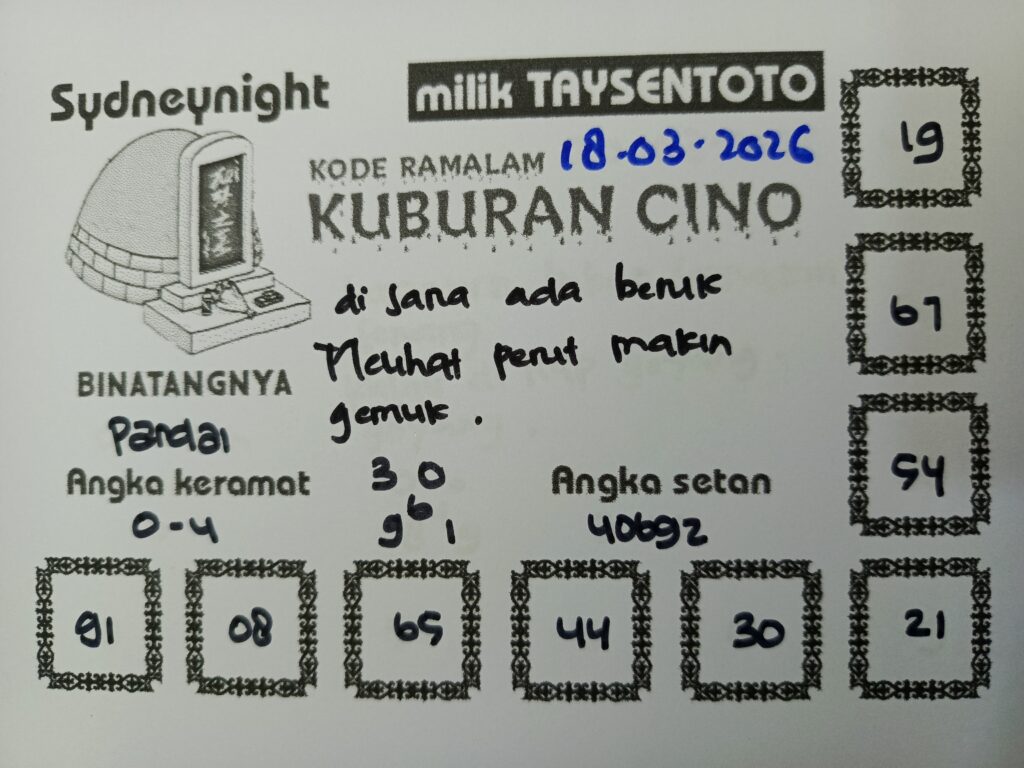 Sydneynight
milik TAYSENTOTO
KODE RAMALAM 18-03-2026
KUBURAN CINO
di sana ada beruk
Melihat perut makin
gemuk.
BINATANGNYA
Pandai
Angka keramat
0-4
30
6
91
Angka setan
40692
19
67
54
91
08
65
44
30
21